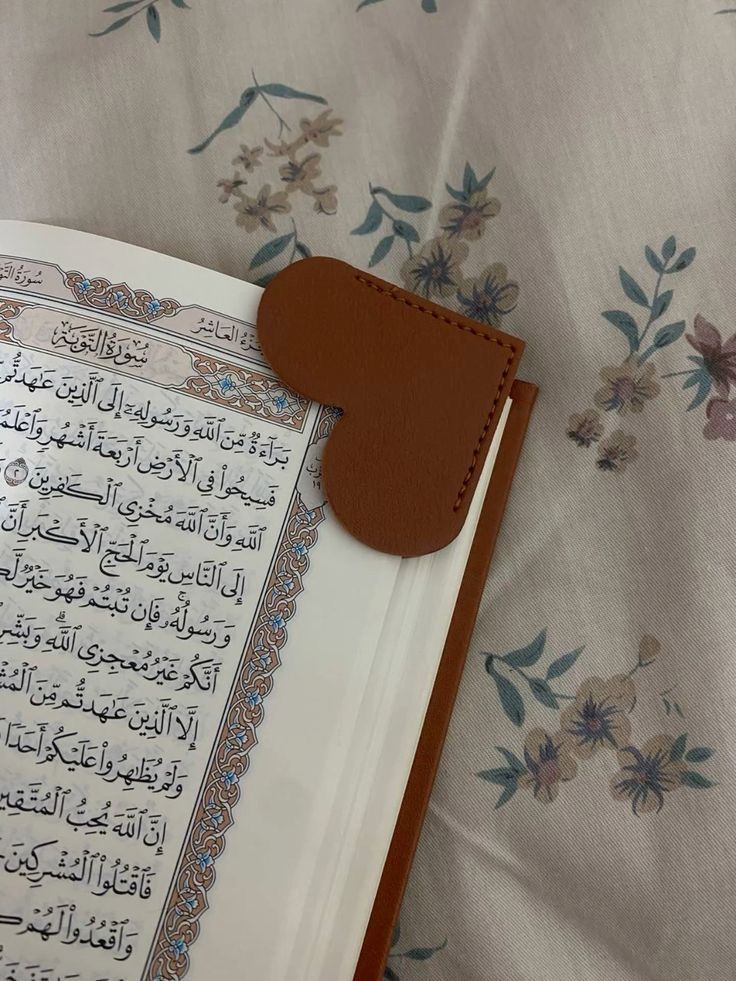 سُورَةُ التَّوْبَةِ
الجُزْءُ العَاشِرُ
سُورَةُ التَّوْبَةِ
بَرَآءَةٌ مِّنَ ٱللَّهِ وَرَسُولِهِۦٓ إِلَى ٱلَّذِينَ عَٰهَدتُّم
فَسِيحُوا۟ فِى ٱلْأَرْضِ أَرْبَعَةَ أَشْهُرٍ وَٱعْلَمُ
ٱللَّهِ وَأَنَّ ٱللَّهَ مُخْزِى ٱلْكَٰفِرِينَ ٢
إِلَى ٱلنَّاسِ يَوْمَ ٱلْحَجِّ ٱلْأَكْبَرِ أَنَّ
وَرَسُولُهُۥ فَإِن تُبْتُمْ فَهُوَ خَيْرٌ لَّكُ
أَنَّكُمْ غَيْرُ مُعْجِزِى ٱللَّهِ وَبَشِّرِ
إِلَّا ٱلَّذِينَ عَٰهَدتُّم مِّنَ ٱلْمُشْ
وَلَمْ يُظَٰهِرُوا۟ عَلَيْكُمْ أَحَدًا
إِنَّ ٱللَّهَ يُحِبُّ ٱلْمُتَّقِينَ
فَٱقْتُلُوا۟ ٱلْمُشْرِكِينَ
وَٱقْعُدُوا۟ لَهُمْ ك